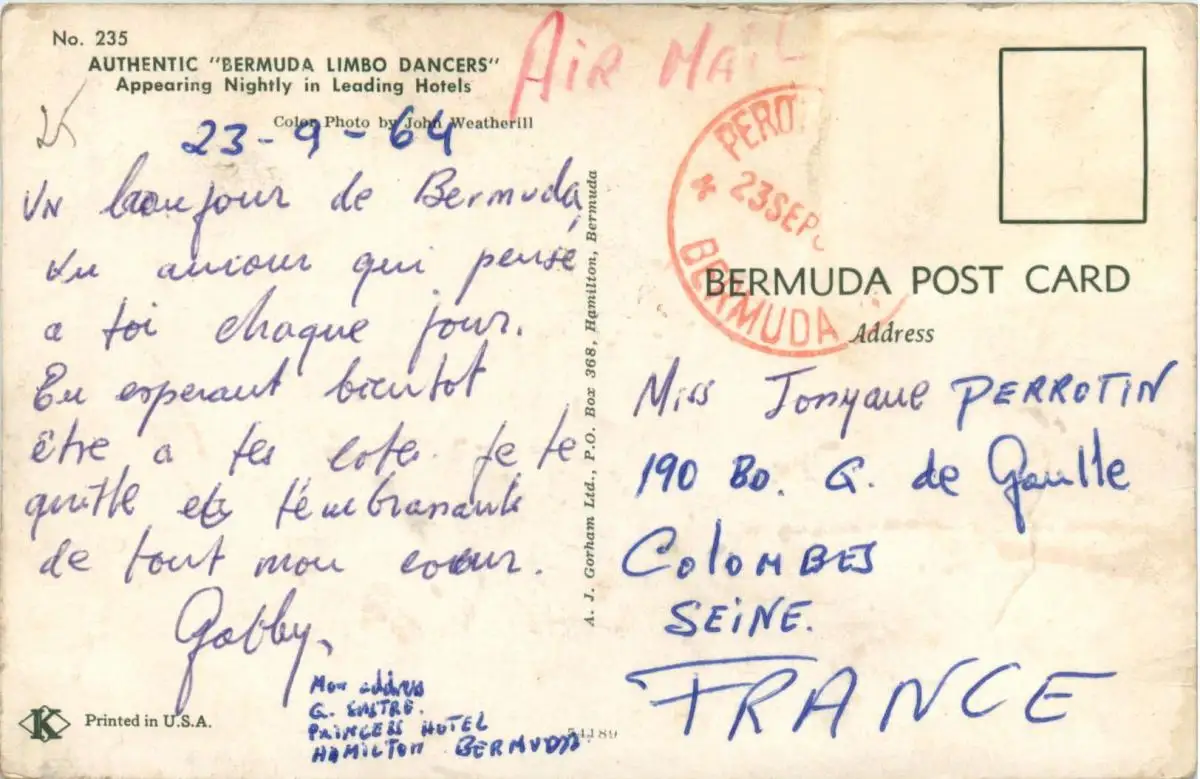 No. 235
AUTHENTIC "BERMUDA LIMBO DANCERS"
Appearing Nightly in Leading Hotels
Color Photo by John Weatherill
23-9-64
Un bonjour de Bermuda,
du amour qui pense
a toi chaque jour.
En esperant bientot
être a tes cotes. Je te
quitte en t'embrassant
de tout mon coeur.
Gabby,
Mon address
G. SASTRE.
PRINCESS HOTEL
HAMILTON BERMUDA
K
Printed in U.S.A.
54189
A. J. Gorham Ltd., P.O. Box 368, Hamilton, Bermuda
AiR MAiL
PERO
* 23 SEP
BERMUDA
BERMUDA POST CARD
Address
Miss Josyane PERROTIN
190 BD. G. de Gaulle
COLOMBES
SEiNE.
FRANCE